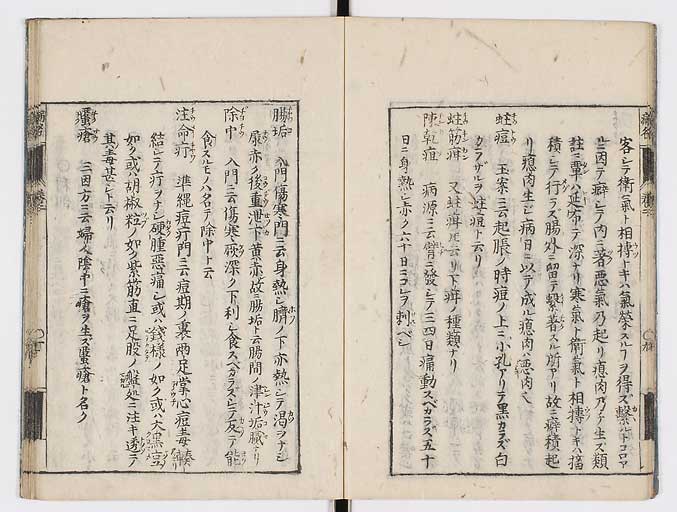 客シテ衛氣ト相摶トキハ氣榮スルヿヲ得ズ繫ルトコロア
リ因テ癖シテ内ニ著惡氣乃起リ瘜肉乃チ生ズ類
註ニ覃ハ延布テ深ナリ寒氣ト衛氣ト相摶トキハ
積シテ行ラズ腸外ニ留テ繫著スル所アリ故ニ癖積起
リ瘜肉生シ病日ニ以テ成ル瘜肉ハ惡肉
蛀痘 玉案ニ云起脹ノ時痘ノ上ニ小孔アリテ黒カラズ白
カラザルヲ蛀痘ト云リ
蛀筋疳 又蛀疳トモ云リ下疳ノ種類ナリ
陳乾疽 病源ニ云臂ニ發シテ三四日痛動スベカラズ五十
日ニ身熱シ赤ク六十日ニコレヲ刺ベシ
腸垢 入門傷寒門ニ云身熱シ臍ノ下亦熱シテ渇ヲナシ
尿赤ク後重泄下黄赤故ニ腸垢ト云腸間ノ津汁垢膩ナリ
除中 入門ニ云傷寒厥深ク下利シ食スベカラズシテ反テ能
食スルモノハ名テ除中ト云
注命疔 準繩痘疔門ニ云痘期ノ裏兩足掌心痘毒輳
結シテ疔ヲナシ硬腫惡痛シ或ハ錢樣ノ如ク或ハ大黒豆
如ク或ハ胡椒粒ノ如ク紫筋直ニ足股ノ處ニ注キ透テ
其毒甚シト云リ
䘌瘡 三因方ニ云婦人陰中ニ瘡ヲ生ズ䘌瘡ト名ク